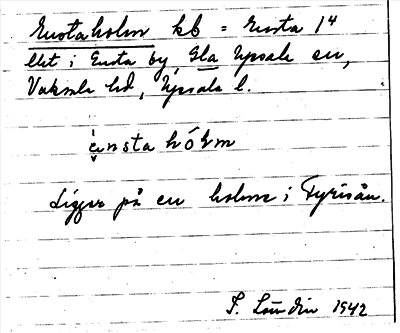 Enstaholm kb = Ensta 1⁴
lht i Ensta by, Gla Upsala sn,
Vaksala hd, Upsala l.
ènsta hólm
Ligger på en holme i Fyrisån.
S. Lundin 1942